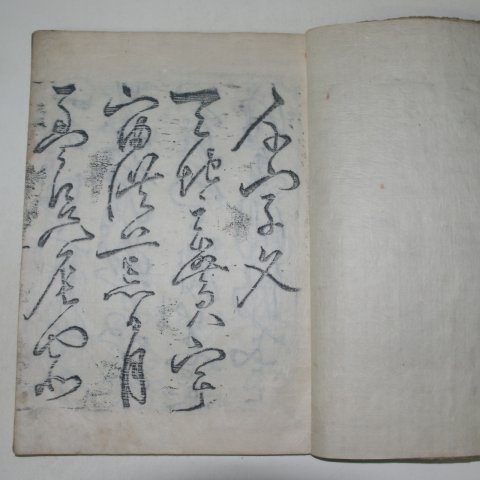 千字文
天地玄黃宇
宙洪荒日月
盈昃辰宿列